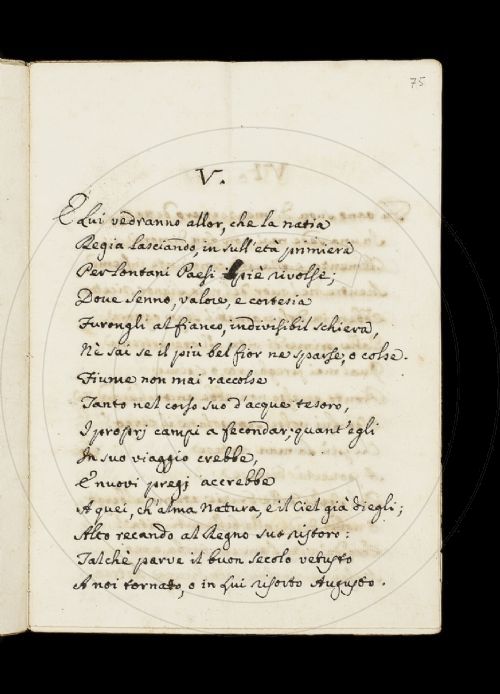 75
V.
E Lui vedranno allor, che la natia
Regia lasciando, in sull'età primiera
Per lontani Paesi il piè rivolse;
Dove senno, valore, e cortesia
Furongli al fianco, indivisibil schiera,
Nè sai se il più bel fior ne sparse, o colse.
Fiume non mai raccolse
Tanto nel corso suo d'acque tesoro,
I proprj campi a fecondar, quant'egli
In suo viaggio crebbe,
E nuovi pregj accrebbe
A quei, ch'alma Natura, e il Ciel già diegli;
Alto recando al Regno suo ristoro:
Talchè parve il buon secolo vetusto
A noi tornato, o in Lui risorto Augusto.